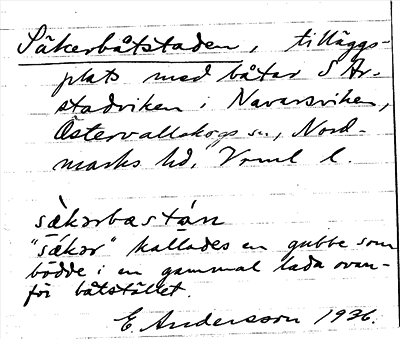 Säkerbåtstaden, tilläggs-
plats med båtar S År-
stadviken i Navarsviken,
Östervallskogs sn, Nord-
marks hd, Vrml l.
säkərbastán
"säkər" kallades en gubbe som
bodde i en gammal lada ovan-
för båtstället.
E. Andersson 1926.